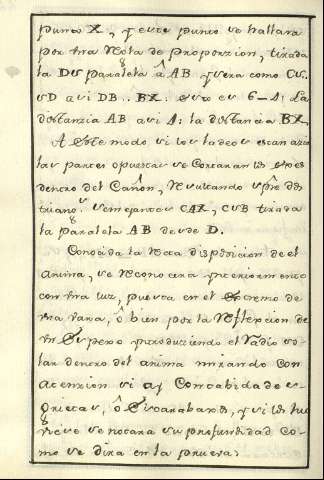 punto X, y este punto se hallara
por una Regla de proporzion, tirada
la DS paralela â AB. y sera como CS.
SD asi DB.. BX: esto es 6-4: la
distanzia AB asi 4: la distancia BX,
A este modo si los lados estan azia
las partes opuestas se Cortaran los exes
dentro del Cañon, Resultando spre dos
trianos. semejantes CAX, CSB tirada
la paralela AB desde D.
Conozida la Recta disposicion de el
anima, se reconocera ynteriormente
con una luz, puesta en el Extremo de
una vara, ô bien por la Reflexcion de
un Espejo yntroduziendo el Radio so-
lar dentro del anima mirando con
atenzion si ay Concabidades
grietas, ô Escarabaxos, y si los hu-
viese se notara su profundidad co-
mo se dira en la prueva: